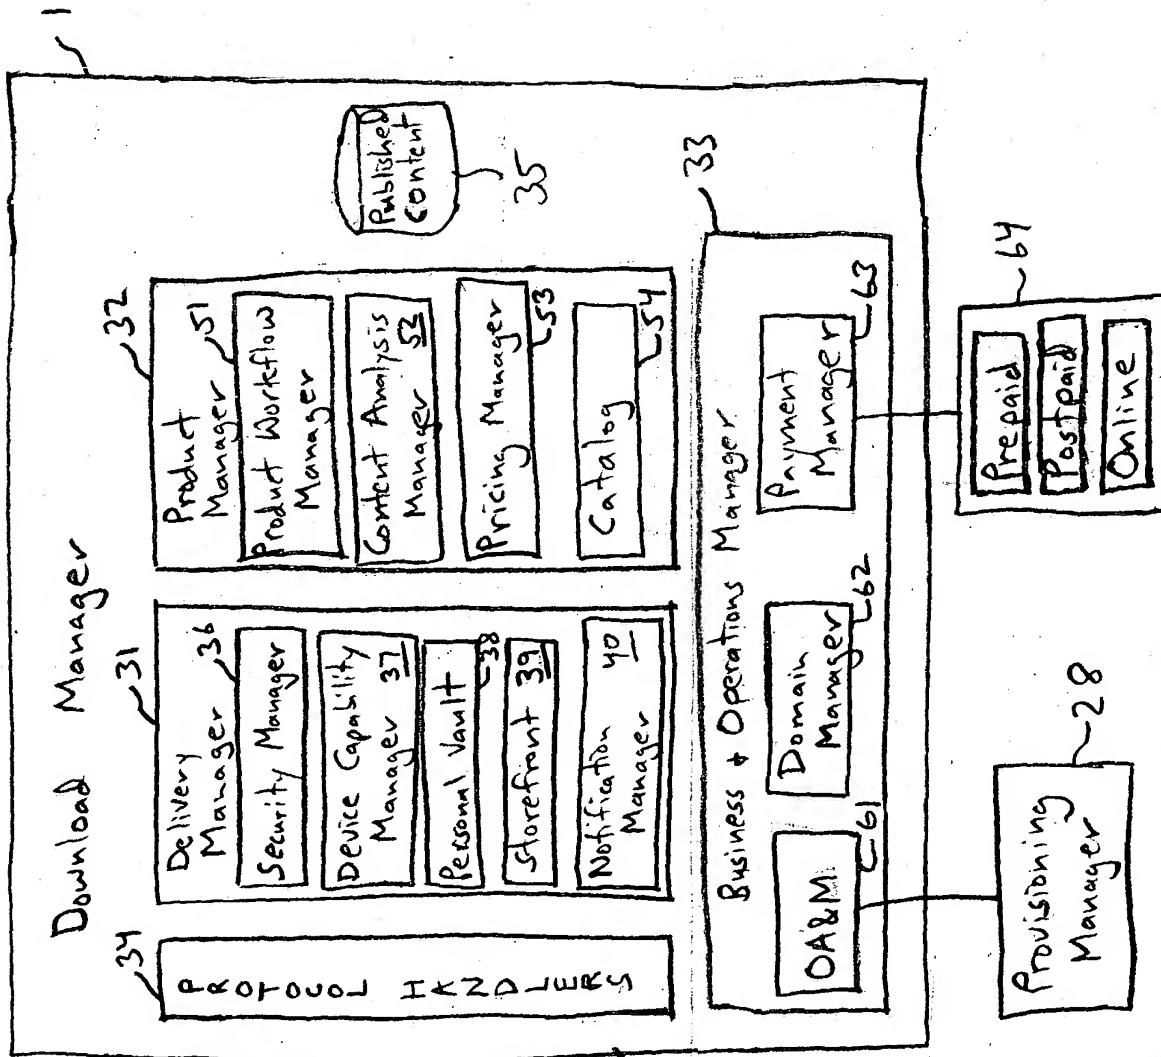 Download Manager
1
34
PROTOCOL HANDLERS
31
Delivery
Manager
36
Security Manager
Device Capability
Manager 37
Personal Vault
38
Storefront 39
Notification 40
Manager
32
Product
Manager
51
Product Workflow
Manager
Content Analysis
Manager 52
Pricing Manager
53
Catalog
54
Published
Content
35
33
Business + Operations Manager
OA&M
61
Domain
Manager
62
Payment
Manager
63
Provisioning
Manager
28
64
Prepaid
Postpaid
Online